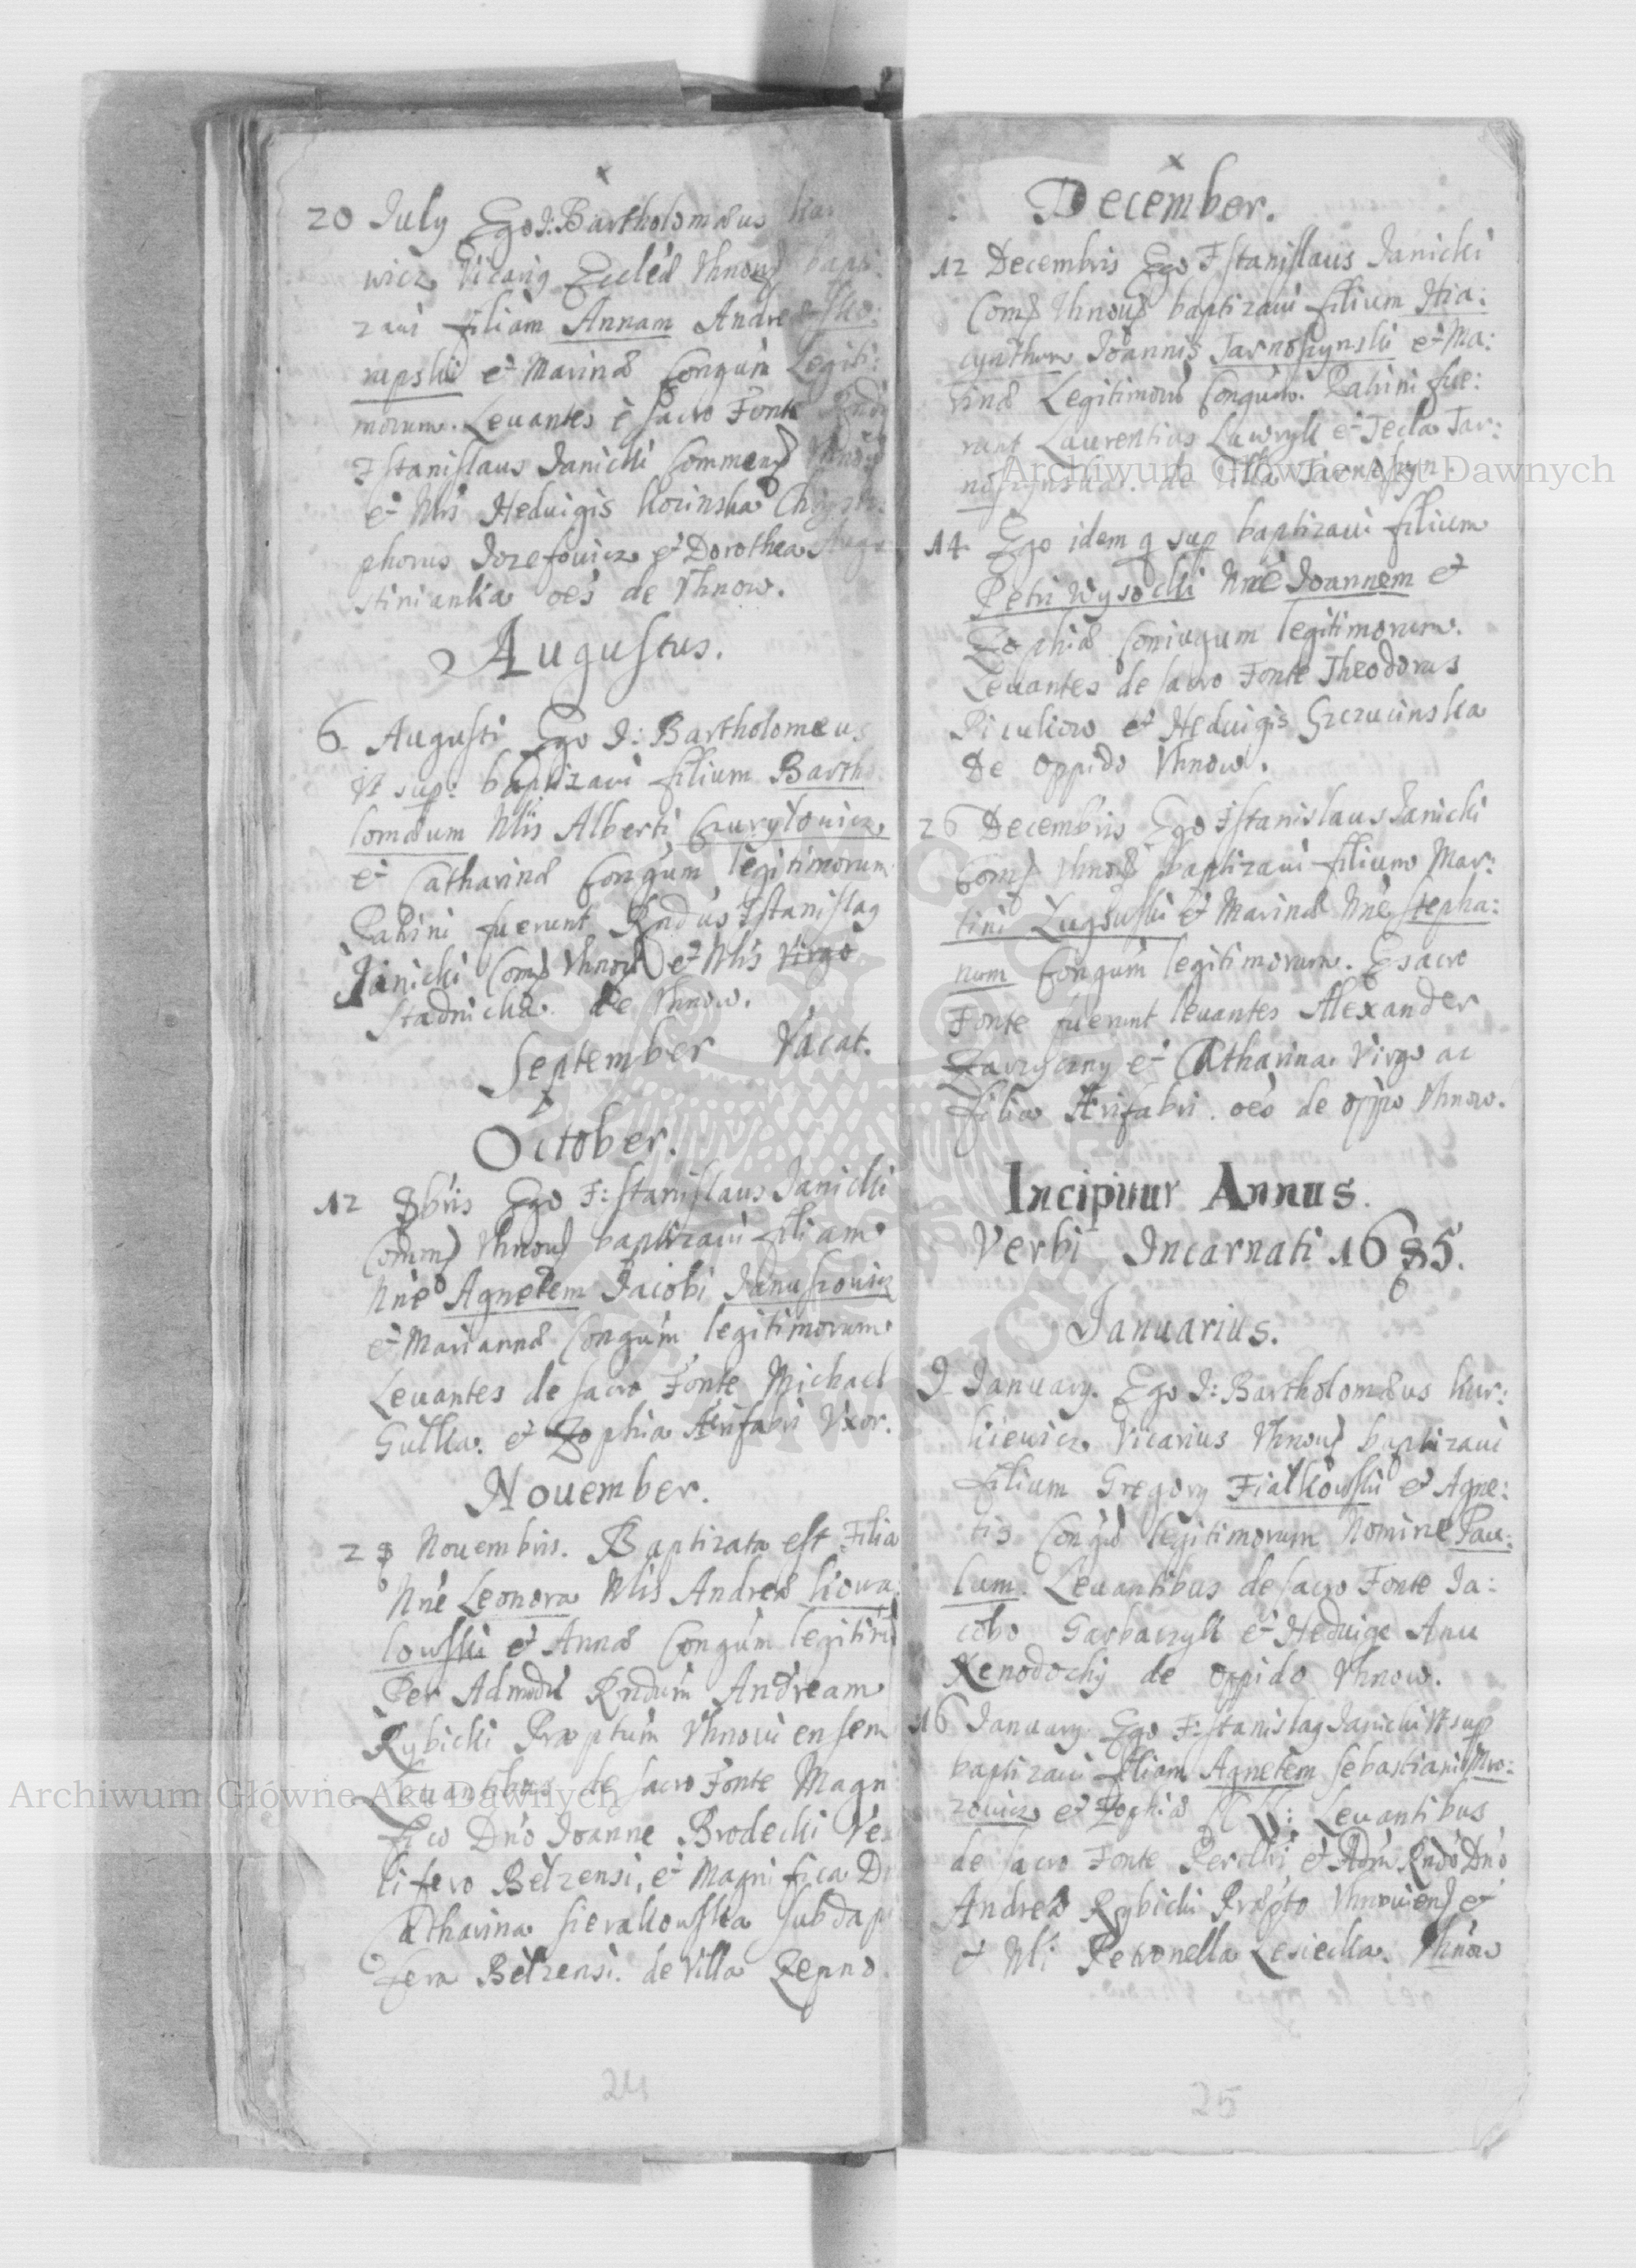 20 July Ego J: Bartholomæus Kur
wicz Vicarig Eccleæ Vhnouῳ bapti
zaui filiam Annam Andreæ Sko:
rupski et Marinæ Congúm Legiti:
morum. Leuantes è sacro Fonte Rndus
F Stanislaus Janicki Commenῳ Vhnouῳ
et Nlis Heduigis Korinska Chrysto:
phorus Jozefouicz et Dorothea Augu
stinianka oés de Vhnow.
Augustus.
6. Augusti Ego J: Bartholomæus
vt sup: baptizaui filium Bartho
lomæum Nlis Alberti Gurylouicz
et Catharinæ Congúm legitimorum
Patrini fuerunt Rndús F Stanislag
Janicki Comῳ Vhnouῳ et Nlis Virgo
Stadnicka. de Vhnow.
September Vacat.
October.
12 8bris Ego F: Stanislaus Janicki
Commῳ Vhnouῳ baptizaui filiam
Nne Agnetem Jacobi Januszouicz
et Mariannæ Congúm legitimorum
Leuantes de sacro Fonte Michael
Gutka. et Zophia Arifabri Vxor.
Nouember.
28 Nouembris. Baptizata est Filia
Nne Leonora Nlis Andreæ Kowa
lowski et Annæ Congúm legitim
Per Admodú Rndum Andream
Rybicki Præptum Vhnouiensem
Leuantibus de sacro Fonte Magni
fico Dno Joanne Brodecki Vex
lifero Betzensi, et Magnifica D
Catharina Sierakowska Subdapi
fera Betzensi. de Villa Rzepno
24
December.
12 Decembris Ego F Stanislaus Janicki
Comῳ Vhnouῳ baptizaui filium Hia:
cynthum Joannis Tarnoszynski et Ma:
rinæ Legitimorú Congúm. Patrini fue:
runt Laurentius Lawryk et Tecla Tar:
noszynska. de Villa Tarnoszyn.
14. Ego idem q sup baptizaui filium
Petri Wysocki Nne Joannem et
Zophiæ Coniugum legitimorum.
Leuantes de sacro Fonte Theodorus
Piculiow et Heduigis Szczucinska
De Oppido Vhnow.
26 Decembris Ego F Stanislaus Janicki
Comῳ Vhnouῳ baptizaui filium Mar:
tini Zugowski et Marinæ Nne Stepha:
num Congúm legitimorum. E sacro
Fonte fuerunt leuantes Alexander
et Catharina Virgo ac
filia Arifabri. oés de oppo Vhnow.
Incipitur Annus.
Verbi Incarnati 1685.
Januarius.
January. Ego J: Bartholomæus Kur:
kiewicz Vicarius Vhnouῳ baptizaui
filium Gregory Fiałkowski et Agne:
tis Congú legitimorum Nomine Pau:
lum. Leuantibus de sacro Fonte Ja:
cobo Garbaczyk et Heduige Anu
Xenodochij de Oppido Vhnow.
16 January Ego F: Stanislag Janicki vt sup
baptizaui filiam Agnetem Sebastiani Mro:
zouicz et Zophiæ CC LL: Leuantibus
de sacro Fonte Perilli et Adm Rndo Dno
Andrea Rybicki Præpto Vhnouienῳ et
et Nli Petronella Lesiecka. Vhnow
25
Archiwum Główne Akt Dawnych
Archiwum Główne Akt Dawnych